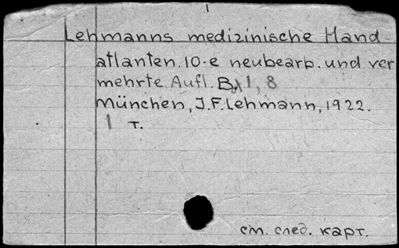 Lehmanns medizinische Hand
atlanten. 10-e neubearb. und ver
mehrte Aufl. Bd 1, 8
München, J.F. Lehmann, 1922.
1 т.
см. след. карт.